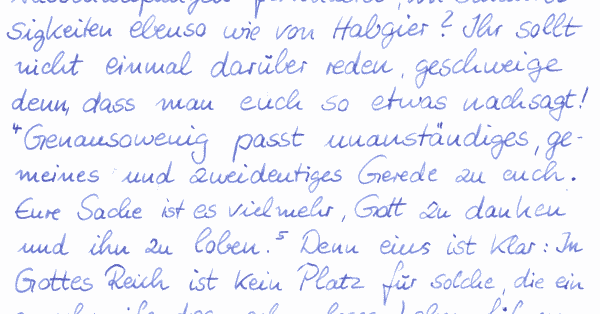 sigkeiten ebenso wie von Habgier? Ihr sollt
nicht einmal darüber reden, geschweige
denn, dass man euch so etwas nachsagt!
⁴Genausowenig passt unanständiges, ge-
meines und zweideutiges Gerede zu euch.
Eure Sache ist es vielmehr, Gott zu danken
und ihn zu loben.⁵ Denn eins ist klar: In
Gottes Reich ist kein Platz für solche, die ein